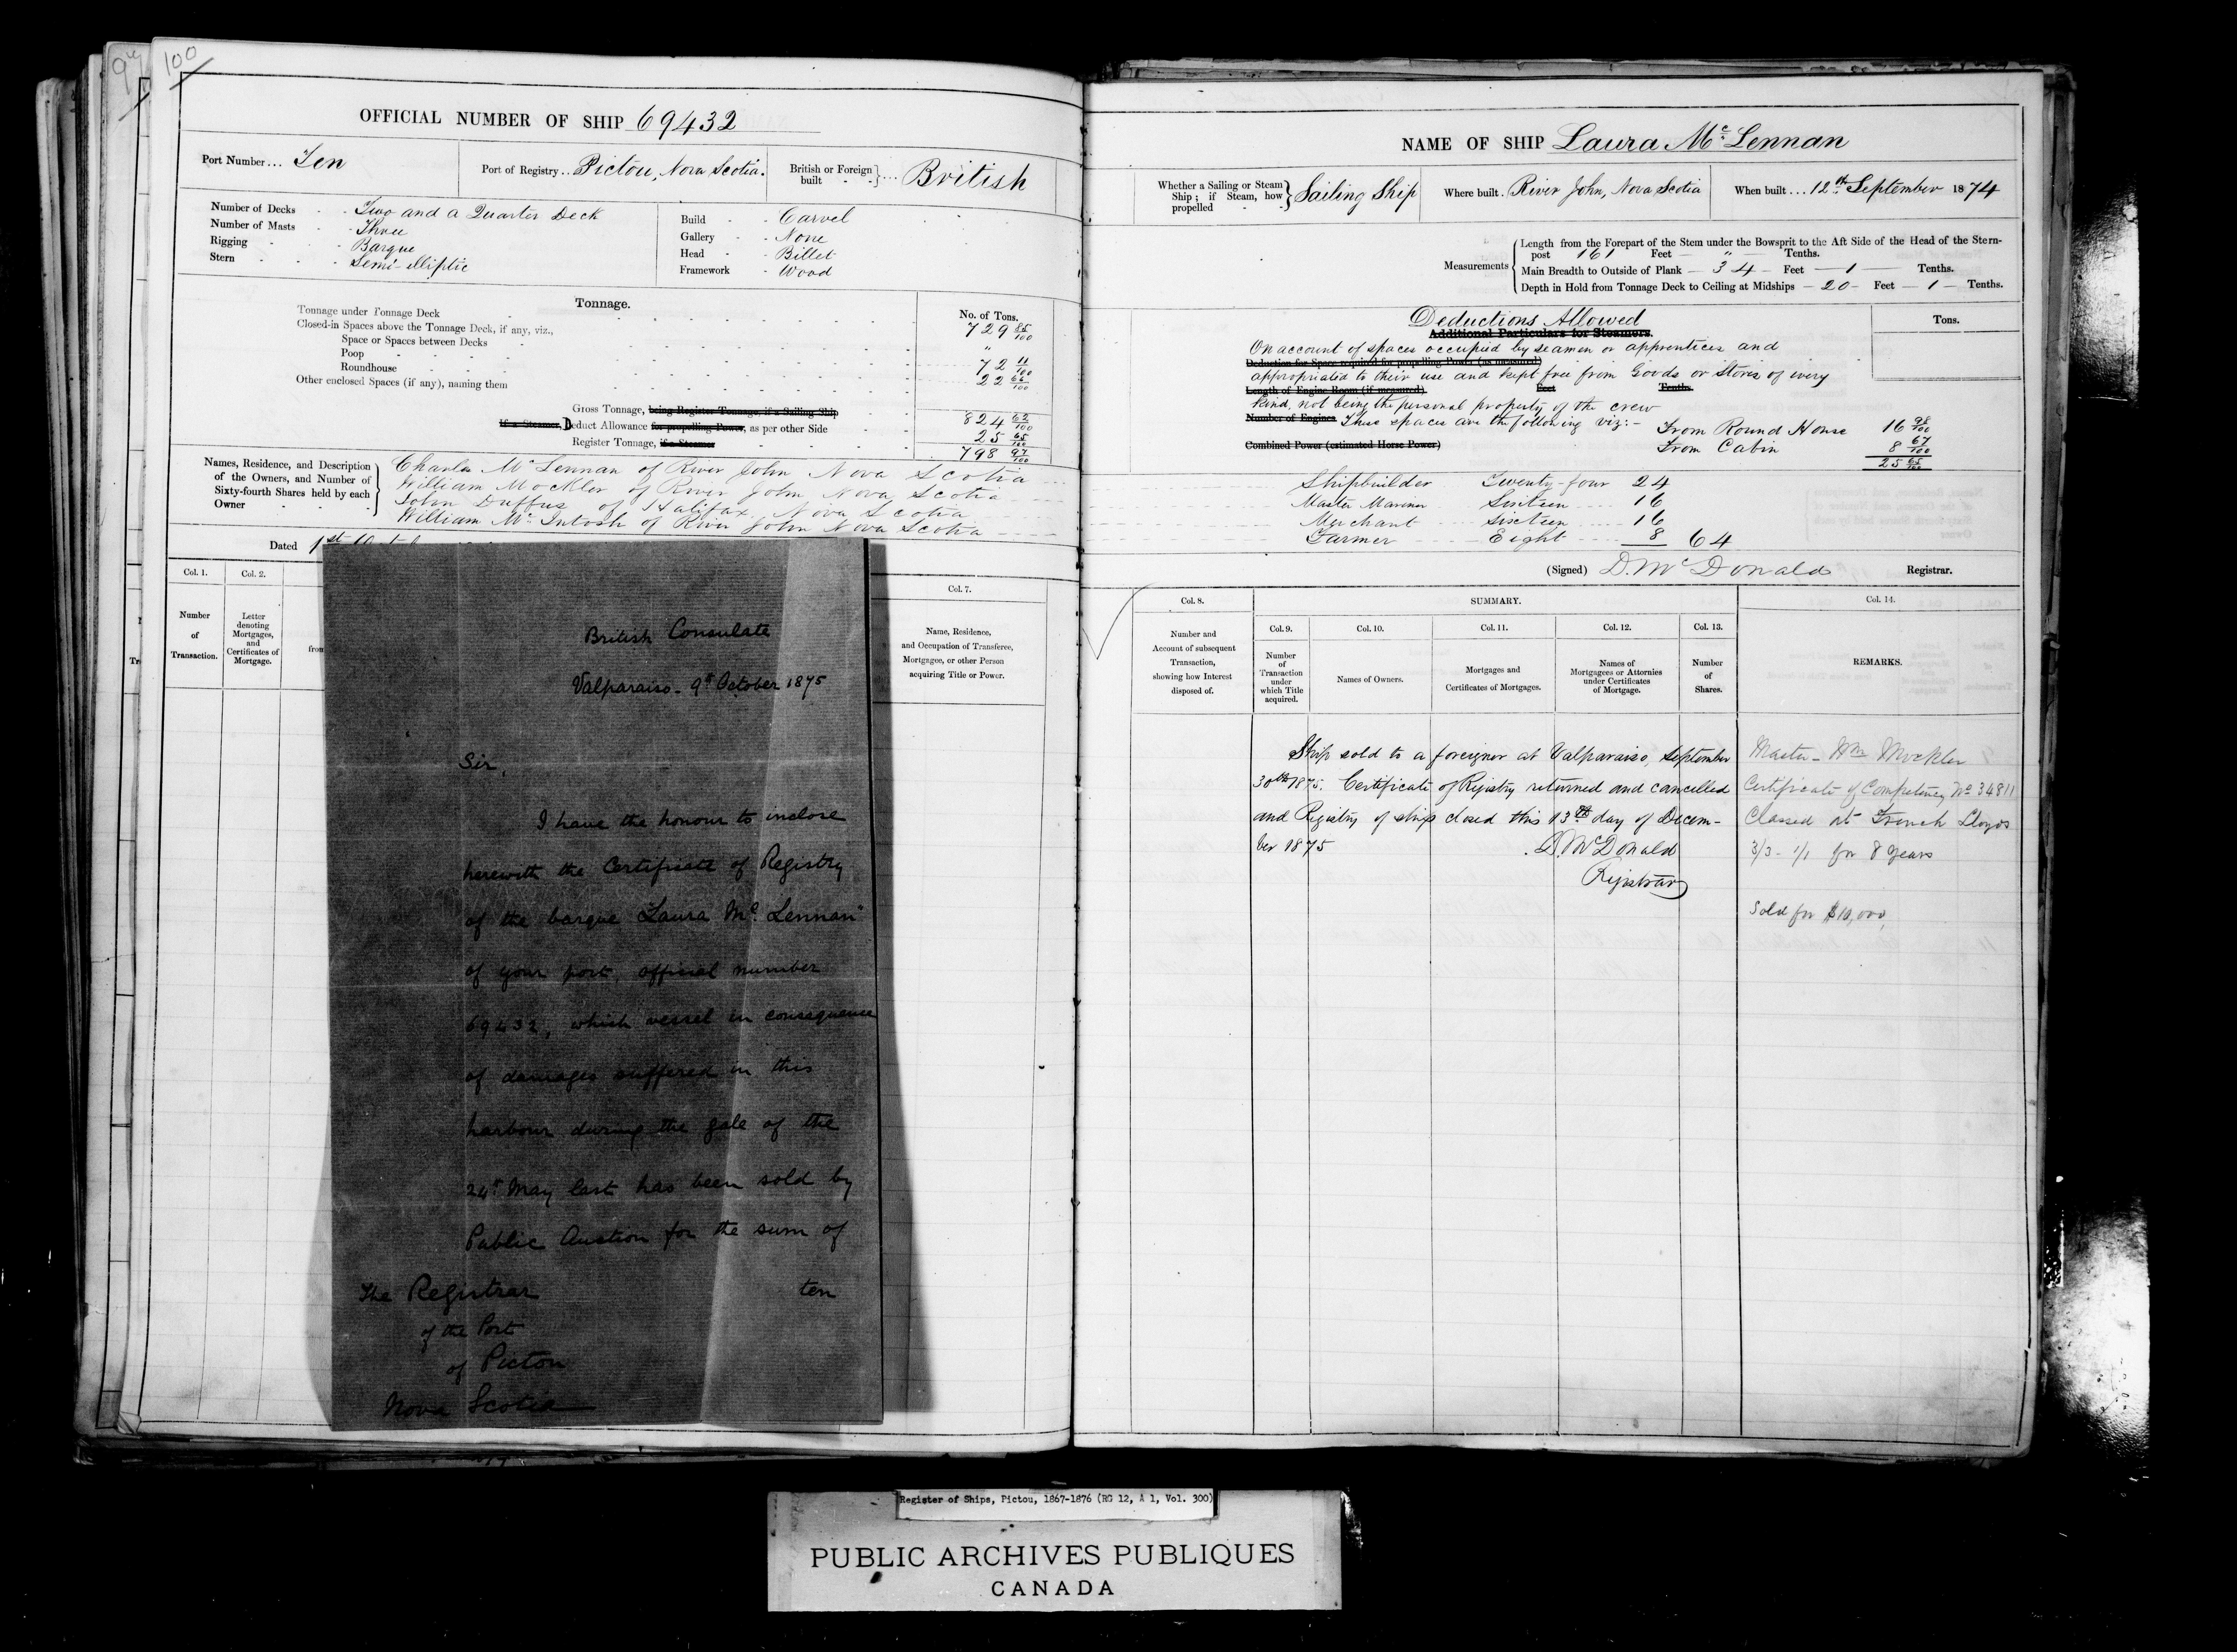 100
OFFICIAL NUMBER OF SHIP 69432
Port Number... Ten
Port of Registry.. Pictou, Nova Scotia.
British or Foreign built } ... British
Number of Decks - - Two and a Quarter Deck
Number of Masts - - Three
Rigging - - - Barque
Stern - - - Semi-elliptic
Build - - Carvel
Gallery - - None
Head - - Billet
Framework - Wood
Tonnage.
No. of Tons.
Tonnage under Tonnage Deck 729 85/100
Closed-in Spaces above the Tonnage Deck, if any, viz.,
Space or Spaces between Decks "
Poop 72 11/100
Roundhouse 22 66/100
Other enclosed Spaces (if any), naming them
Gross Tonnage, being Register Tonnage, if a Sailing Ship 824 62/100
If a Steamer, Deduct Allowance for propelling Power, as per other Side 25 65/100
Register Tonnage, if a Steamer 798 97/100
Names, Residence, and Description of the Owners, and Number of Sixty-fourth Shares held by each Owner
Charles McLennan of River John Nova Scotia
William Mockler of River John Nova Scotia
John Duffus of Halifax, Nova Scotia
William McIntosh of River John Nova Scotia
Dated 1st
Col. 1.
Number of Transaction.
Col. 2.
Letter denoting Mortgages, and Certificates of Mortgage.
from
Col. 7.
Name, Residence, and Occupation of Transferee, Mortgagee, or other Person acquiring Title or Power.
British Consulate
Valparaiso - 9th October 1875
Sir,
I have the honour to inclose
herewith the Certificate of Registry
of the barque "Laura Mc Lennan"
of your port, official number
69432, which vessel in consequence
of damages suffered in this
harbour during the gale of the
24th May last has been sold by
Public Auction for the sum of
ten
The Registrar
of the Port
of Pictou
Nova Scotia
NAME OF SHIP Laura McLennan
Whether a Sailing or Steam Ship; if Steam, how propelled } Sailing Ship
Where built. River John, Nova Scotia
When built... 12th September 1874
Measurements
Length from the Forepart of the Stem under the Bowsprit to the Aft Side of the Head of the Stern-
post 161 Feet — " — Tenths.
Main Breadth to Outside of Plank — 34 — Feet — 1 — Tenths.
Depth in Hold from Tonnage Deck to Ceiling at Midships — 20 — Feet — 1 — Tenths.
Deductions Allowed
Additional Particulars for Steamers.
Tons.
On account of spaces occupied by seamen or apprentices and
Deduction for Space required for propelling Power (as measured)
appropriated to their use and kept free from Goods or Stores of every
Length of Engine Room (if measured) Feet Tenths.
kind, not being the personal property of the crew
Number of Engines These spaces are the following viz:- From Round House 16 98/100
Combined Power (estimated Horse Power) From Cabin 8 67/100
25 65/100
Shipbuilder Twenty-four 24
Master Mariner Sixteen 16
Merchant Sixteen 16
Farmer Eight 8 64
(Signed) D. McDonald Registrar.
Col. 8.
Number and Account of subsequent Transaction, showing how Interest disposed of.
SUMMARY.
Col. 9.
Number of Transaction under which Title acquired.
Col. 10.
Names of Owners.
Col. 11.
Mortgages and Certificates of Mortgages.
Col. 12.
Names of Mortgagees or Attornies under Certificates of Mortgage.
Col. 13.
Number of Shares.
Col. 14.
REMARKS.
Ship sold to a foreigner at Valparaiso, September
30th 1875. Certificate of Registry returned and cancelled
and Registry of ship closed this 13th day of Decem-
ber 1875
D. McDonald
Registrar
Master - Wm Mockler
Certificate of Competency No 34811
Classed at French Lloyds
3/3 - 1/1 for 8 years
Sold for $10,000,
Register of Ships, Pictou, 1867-1876 (RG 12, A 1, Vol. 300)
PUBLIC ARCHIVES PUBLIQUES
CANADA